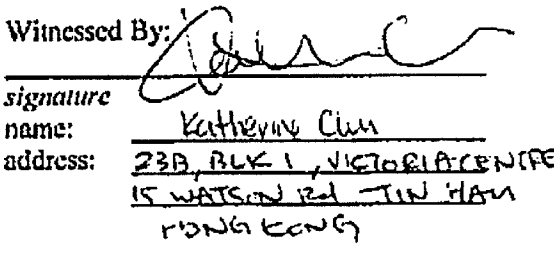 Witnessed By:
signature
name: Katherine Chu
address: 23B, BLK 1, VICTORIA CENTRE
15 WATSON Rd TIN HAU
HONG KONG